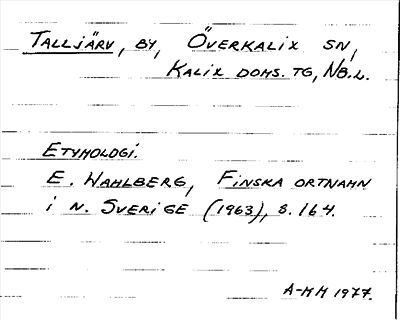 TALLJÄRV, BY, ÖVERKALIX SN,
KALIX DOMS. TG, NB.L.
ETYMOLOGI.
E. WAHLBERG, FINSKA ORTNAMN
I N. SVERIGE (1963), S. 164.
A-MH 1977.